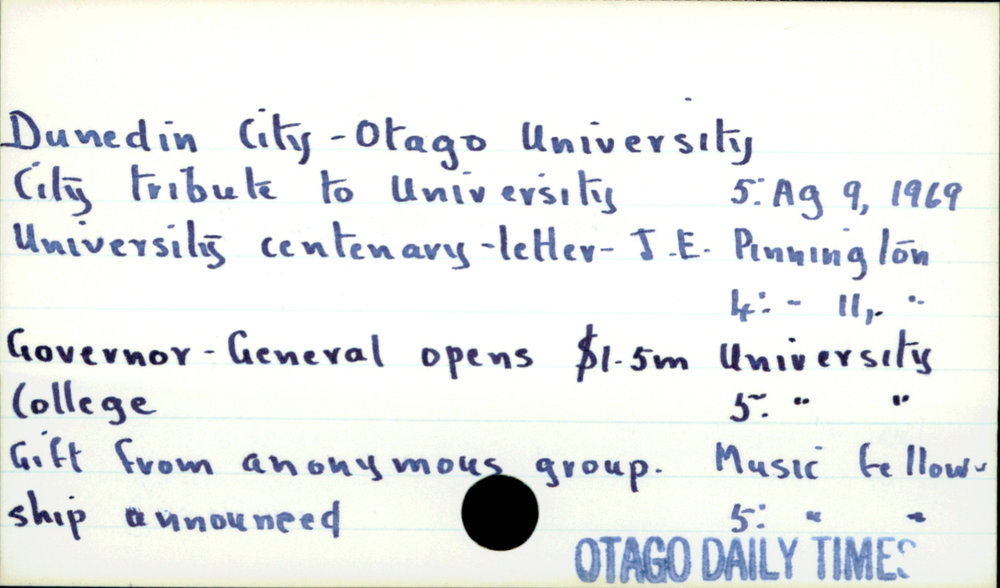 Dunedin City - Otago University
City tribute to University 5: Ag 9, 1969
University centenary - letter - J.E. Pennington
4: " 11, "
Governor-General opens $1.5m University
College 5: " "
Gift from anonymous group. Music fellow-
ship announced 5: " "
OTAGO DAILY TIMES